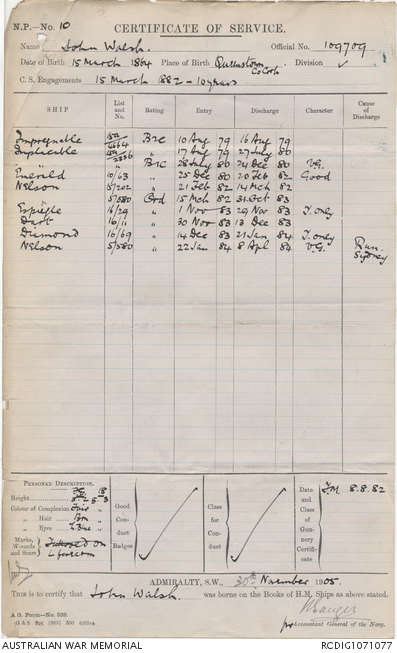 N.P.—No. 10
CERTIFICATE OF SERVICE.
Name John Walsh. Official No. 109709
Date of Birth 15 March 1864 Place of Birth Queenstown Co Cork Division
C. S. Engagements 15 March 1882 – 10 years
SHIP List and No. Rating Entry Discharge Character Cause of Discharge
Impregnable B2c 10 Aug 79 16 Aug 79
Implacable " 17 Aug 79 27 July 80
" B1c 28 July 80 24 Dec 80 VG.
Emerald 10/63 " 25 Dec 80 20 Feb 82 Good
Nelson 5/202 " 21 Feb 82 14 Mch 82
" 5/580 Ord 15 Mch 82 31 Oct 83
Espiegle 16/29 " 1 Nov 83 29 Nov 83 T. only
Dart 16/1 " 30 Nov 83 13 Dec 83
Diamond 16/69 " 14 Dec 83 21 Jan 84 T. only
Nelson 5/580 " 22 Jan 84 8 Apl 84 VG. Run Sydney
PERSONAL DESCRIPTION.
18
Height
Colour of Complexion Fair
" Hair Bro
" Eyes L Blue
Marks, Wounds and Scars Tattooed on L forearm
Good Conduct Badges
Class for Conduct
Date and Class of Gunnery Certificate
T.M 8.8.82
ADMIRALTY, S.W., 30th November 1905.
This is to certify that John Walsh was borne on the Books of H.M. Ships as above stated.
for Accountant General of the Navy.
A G. Form—No. 539.
AUSTRALIAN WAR MEMORIAL RCDIG1071077